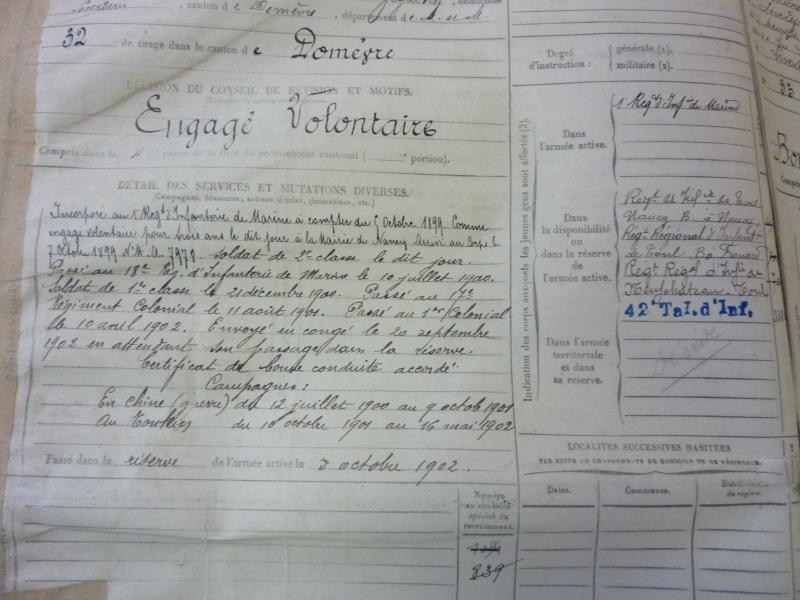 canton de Domèvre, département de M. et M.
32 de tirage dans le canton de Domèvre
DÉCISION DU CONSEIL DE RÉVISION ET MOTIFS.
Engagé Volontaire
Compris dans la 4e partie de la liste du recrutement cantonal ( portion).
DÉTAIL DES SERVICES ET MUTATIONS DIVERSES.
(Campagnes, blessures, actions d'éclat, décorations, etc.)
Incorporé au 1er Regt d'Infanterie de Marine à compter du 5 Octobre 1899. Comme
engagé volontaire pour trois ans le dit jour à la Mairie de Nancy. Arrivé au Corps le
7 Octobre 1899 No Mle 7970. Soldat de 2e classe le dit jour.
Passé au 18e Rég. d'Infanterie de Marine le 10 juillet 1900.
Soldat de 1re classe le 21 décembre 1900. Passé au 17e
Régiment Colonial le 11 août 1901. Passé au 1er Colonial
le 10 avril 1902. Envoyé en congé le 20 septembre
1902 en attendant son passage dans la réserve.
Certificat de bonne conduite accordé.
Campagnes:
En Chine (guerre) du 12 juillet 1900 au 9 octob 1901
Au Tonkin du 10 octobre 1901 au 16 mai 1902
Passé dans la réserve de l'armée active le 5 octobre 1902.
Numéro
au contrôle
spécial du
recrutement.
839
Degré
d'instruction :
générale (1).
militaire (2).
Indication des corps auxquels les jeunes gens sont affectés (3).
Dans
l'armée active.
1er Regt d'Infie de Marine
Dans
la disponibilité
ou
dans la réserve
de l'armée active.
Regt de Infie de
Nancy B. à Nancy
Regt Régional d'Infant
de Toul
Regt Regal d'Infie de
Neufchâteau Toul
42e Tal. d'Inf.
Dans l'armée
territoriale
et dans
sa réserve.
LOCALITÉS SUCCESSIVES HABITÉES
PAR SUITE DE CHANGEMENTS DE DOMICILE OU DE RÉSIDENCE.
Dates.
Communes.
Subdivision
de région.
33